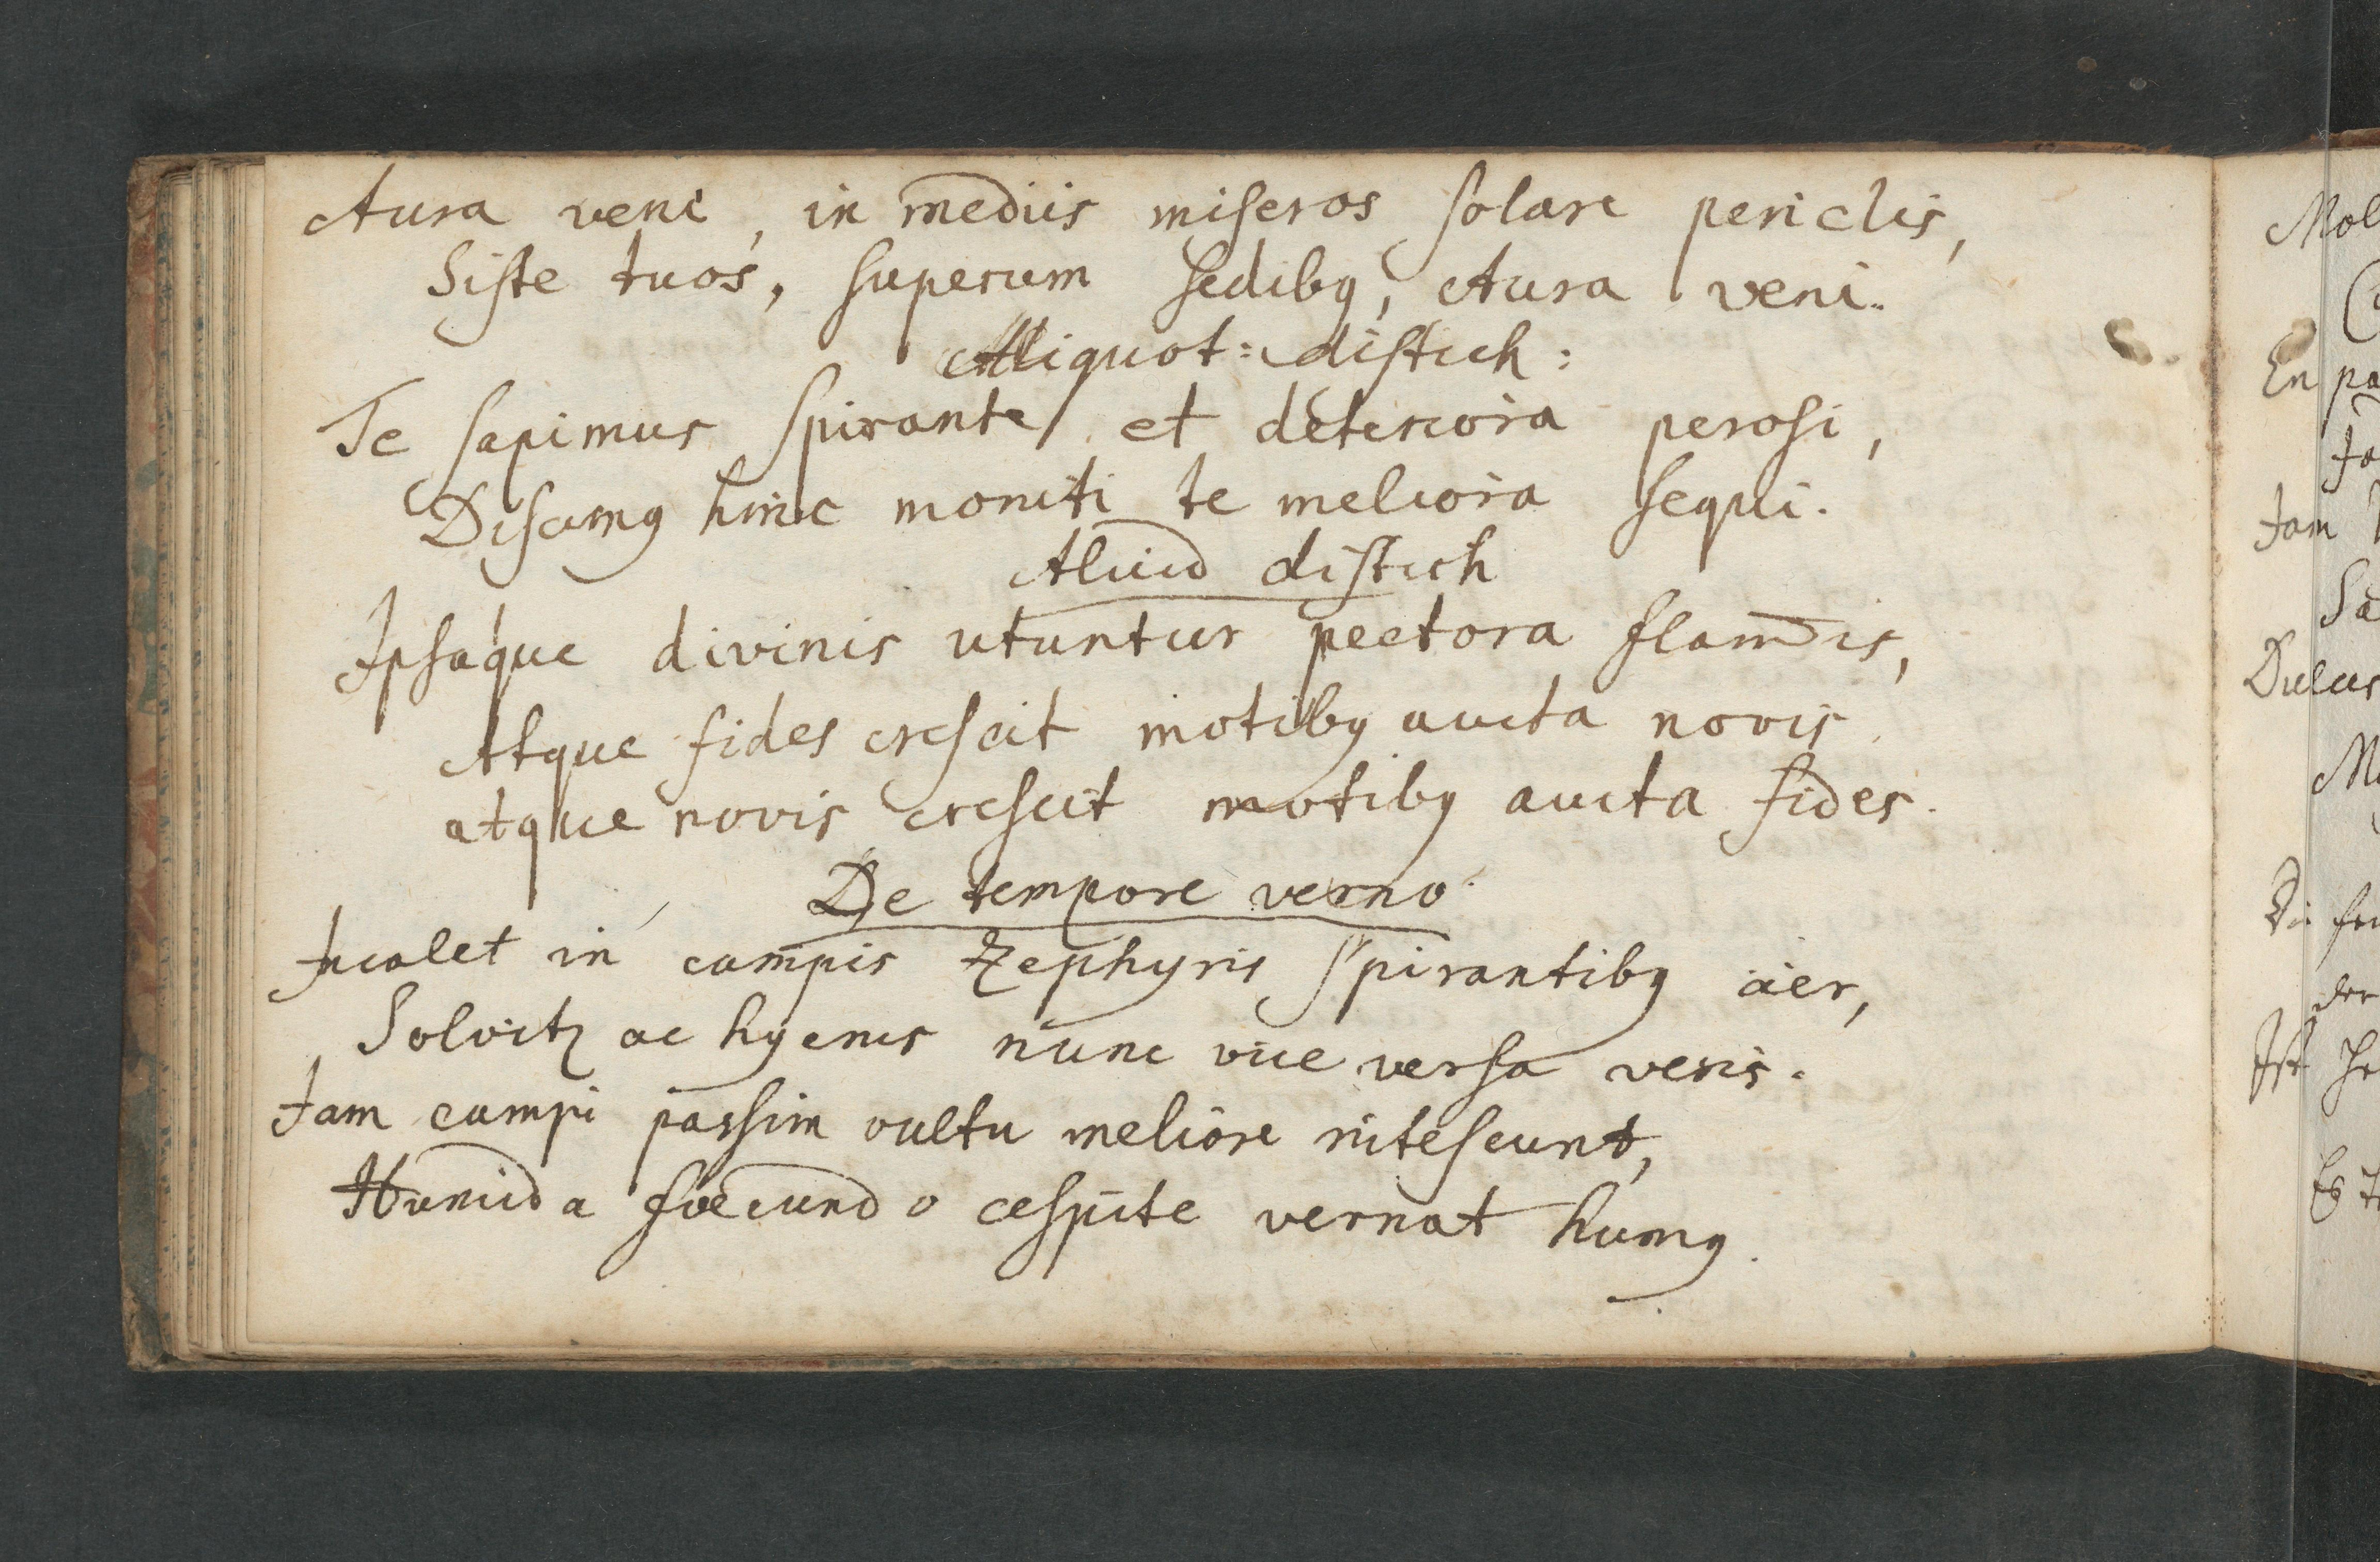 Aura veni, in mediis miseros solare periclis,
Siste tuos, superum sedibꝰ, Aura veni.
Aliquot: distich:
Te sapimus spirante, et deteriora perosi,
Discimꝰ hinc moniti te meliora sequi.
Aliud distich
Ipsaque divinis utuntur pectora flam̄is,
Atque fides crescit motibꝰ aucta novis.
atque novis crescit motibꝰ aucta fides.
De tempore verno.
Incalet in campis Zephyris spirantibꝰ aër,
Solvitꝛ ac hyems nunc vice versa veris.
Jam campi passim vultu meliore nitescunt,
Humida foecundo cespite vernat humꝰ.
Mol
En pa
Ja
Jam
Sa
Dulcis
der
Ist
Es